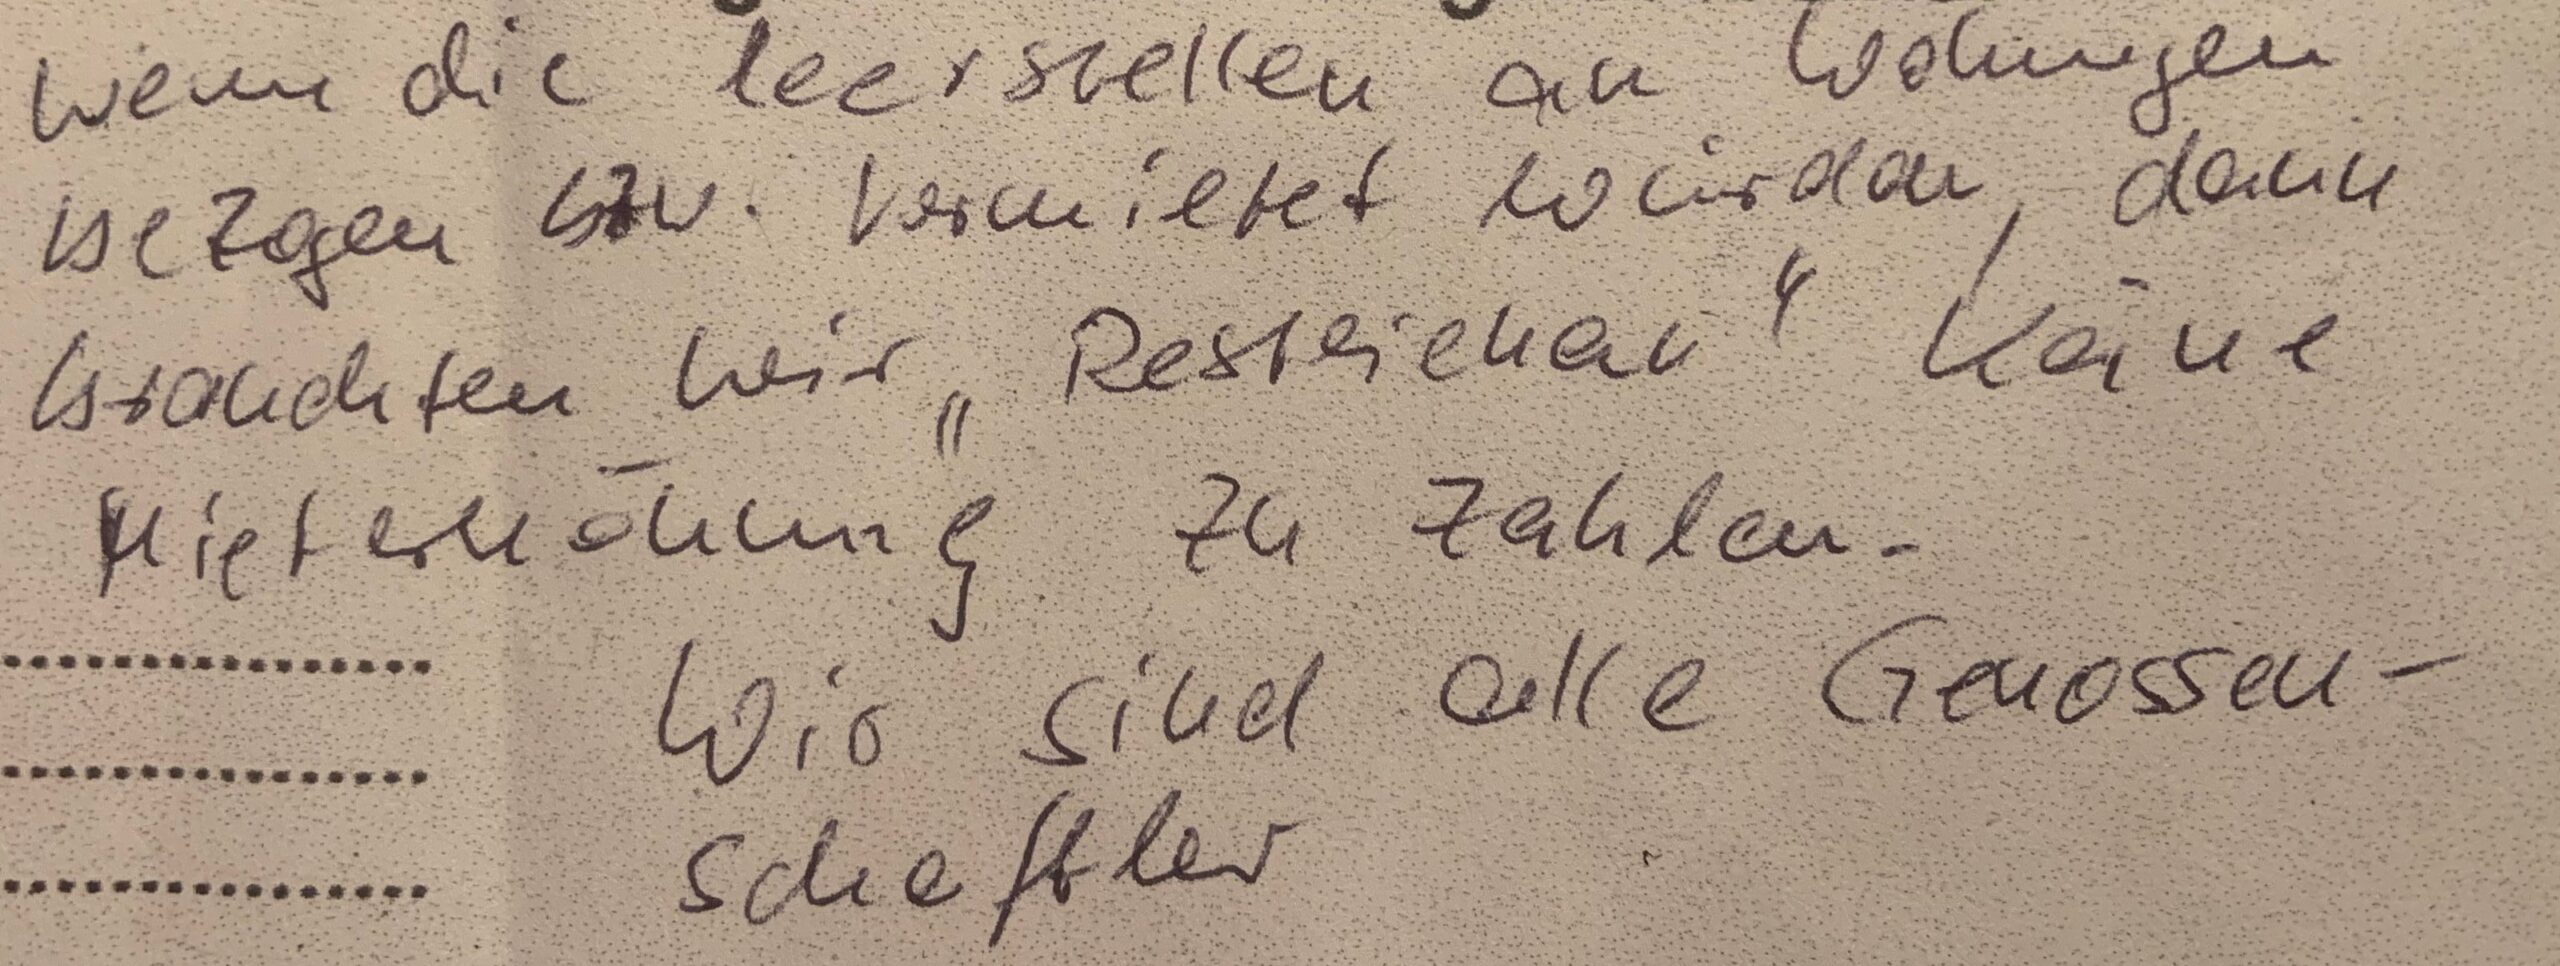 Wenn die leerstellen an Wohungen
bezogen bzw. vermietet würden, dann
brauchten wir „Restlichen“ keine
Mieterhöhung zu zahlen.
Wir sind alle Genossen-
schaftler